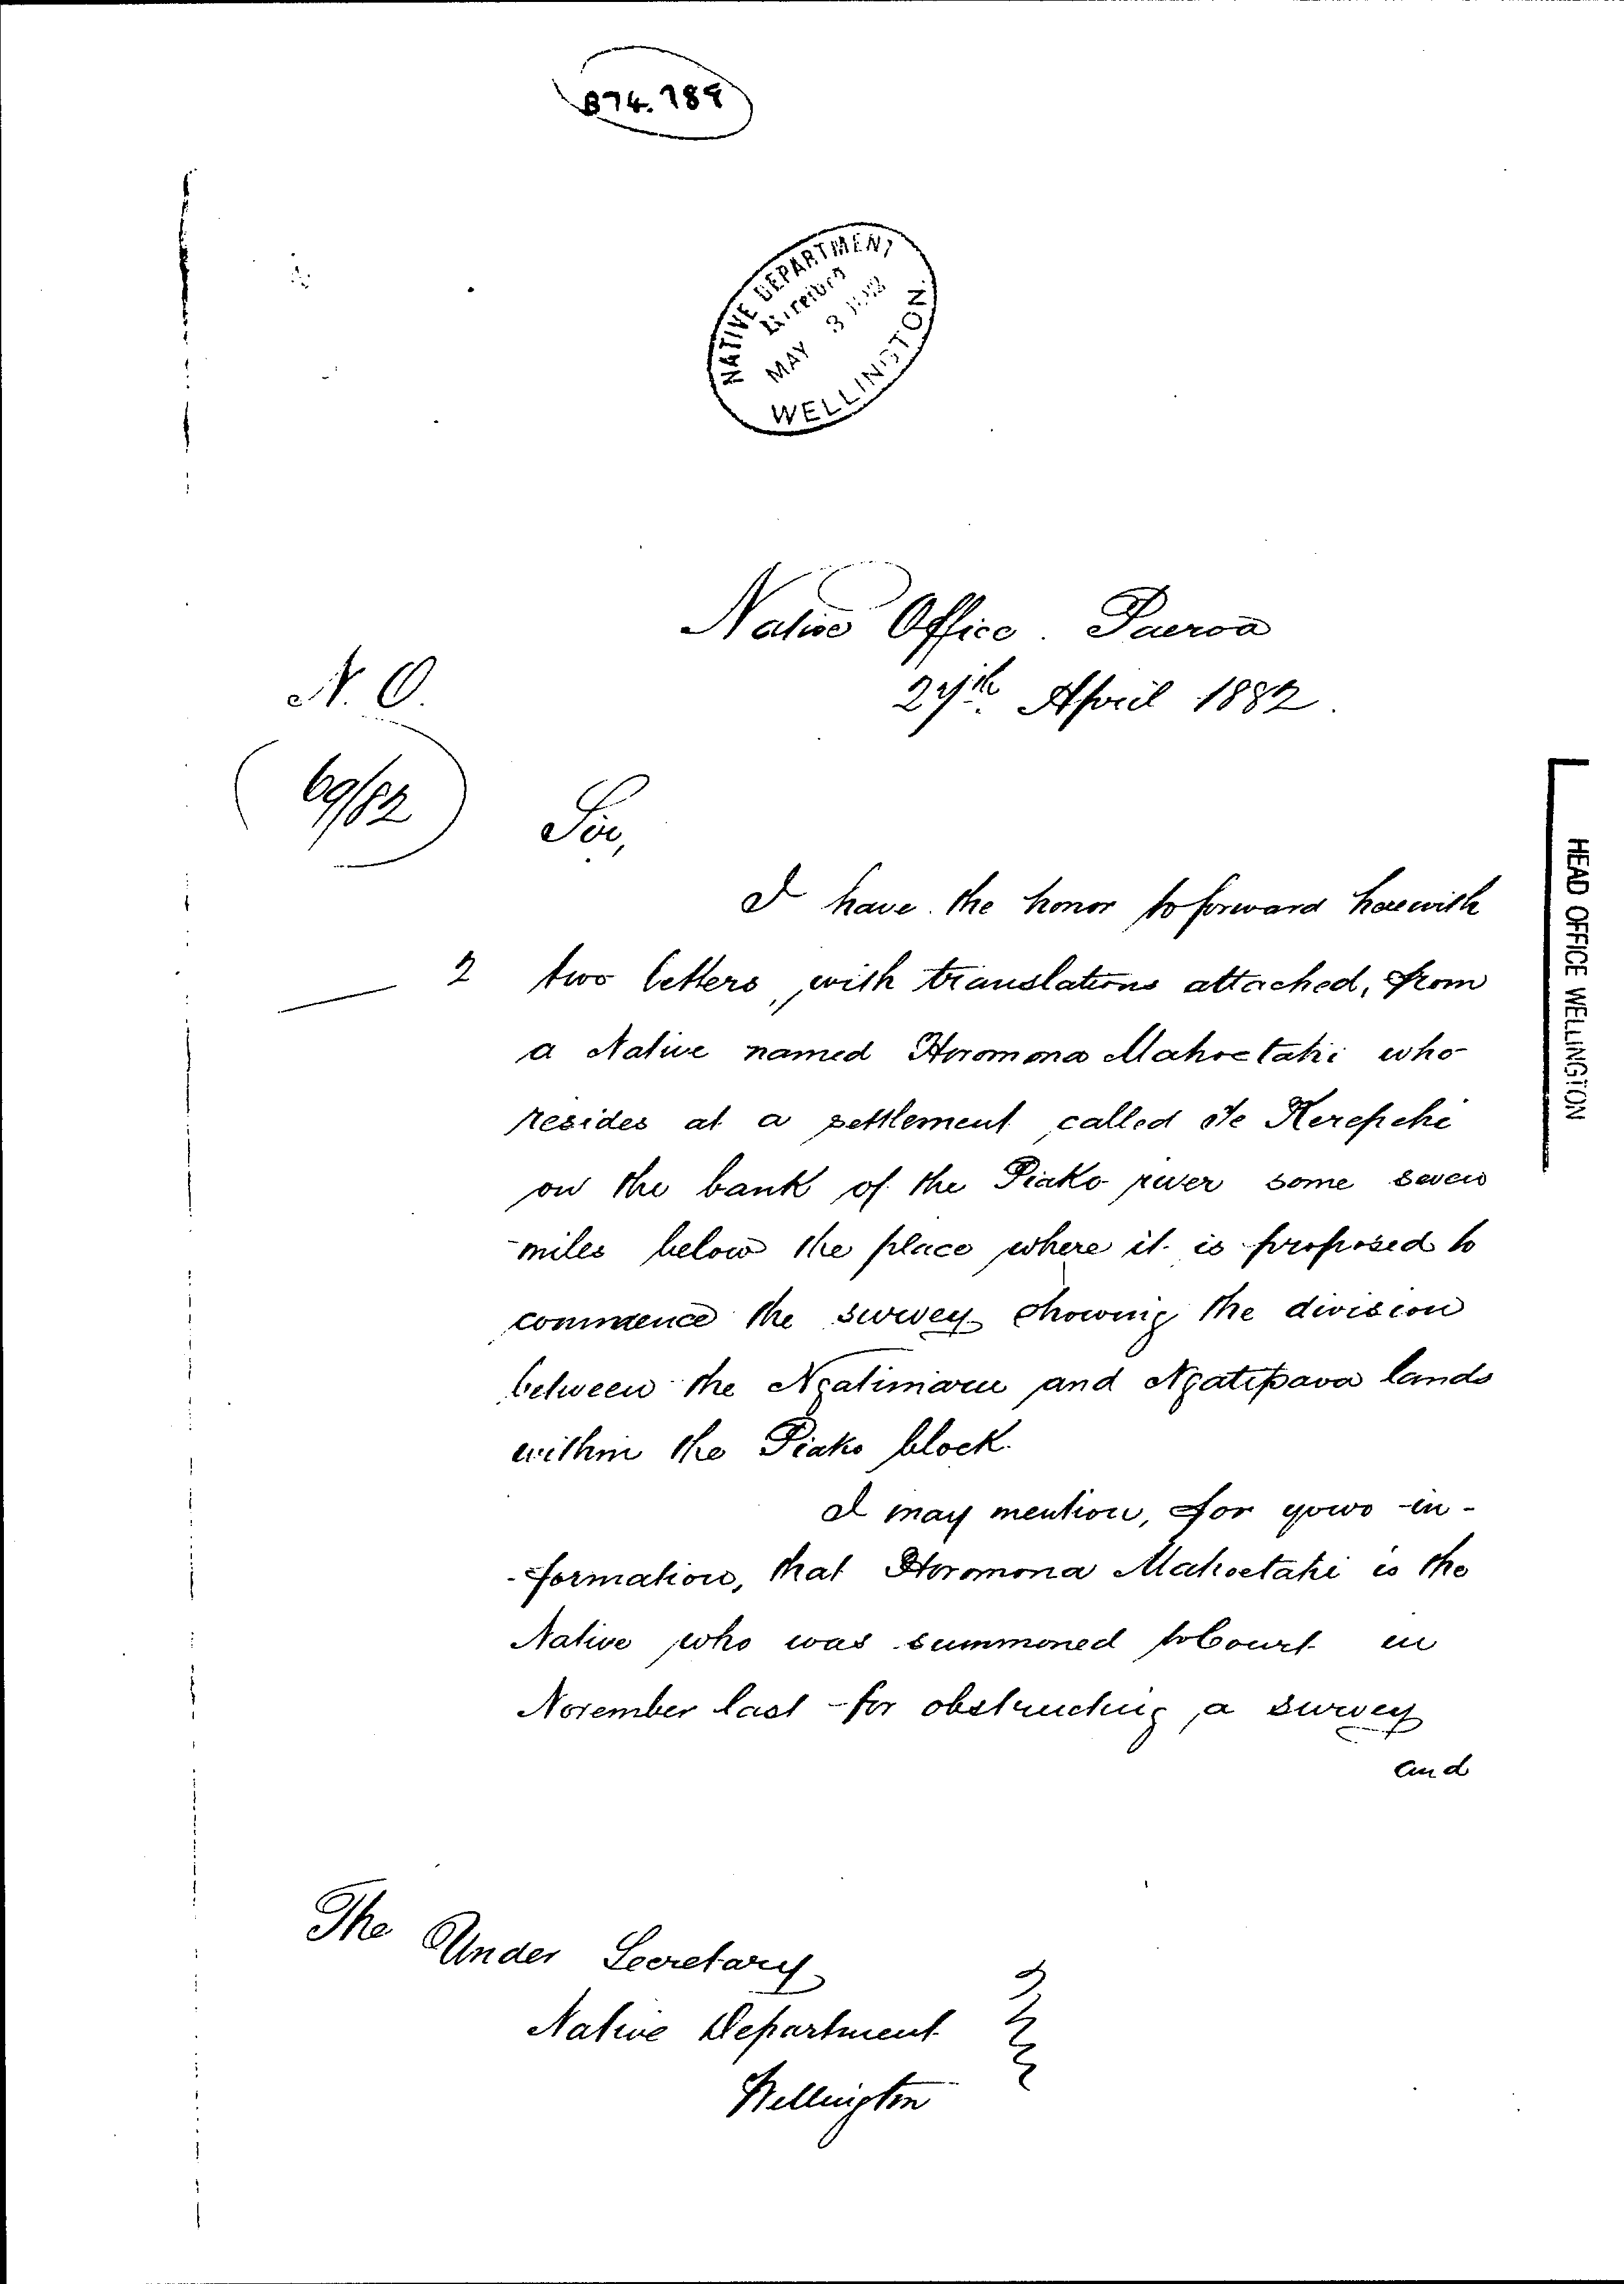 874.789
NATIVE DEPARTMENT
Received
MAY 3 1882
WELLINGTON.
Native Office. Paeroa
27th. April 1882.
N. O.
69/82
Sir,
I have the honor to forward herewith
2 two letters, with translations attached, from
a Native named Horomona Mahoetahi who
resides at a settlement called Te Kerepehi
on the bank of the Piako river some seven
miles below the place where it is proposed to
commence the survey showing the division
between the Ngatimaru and Ngatipaoa lands
within the Piako block.
I may mention, for your in-
-formation, that Horomona Mahoetahi is the
Native who was summoned to Court in
November last for obstructing a survey
and
The Under Secretary
Native Department
Wellington
HEAD OFFICE WELLINGTON